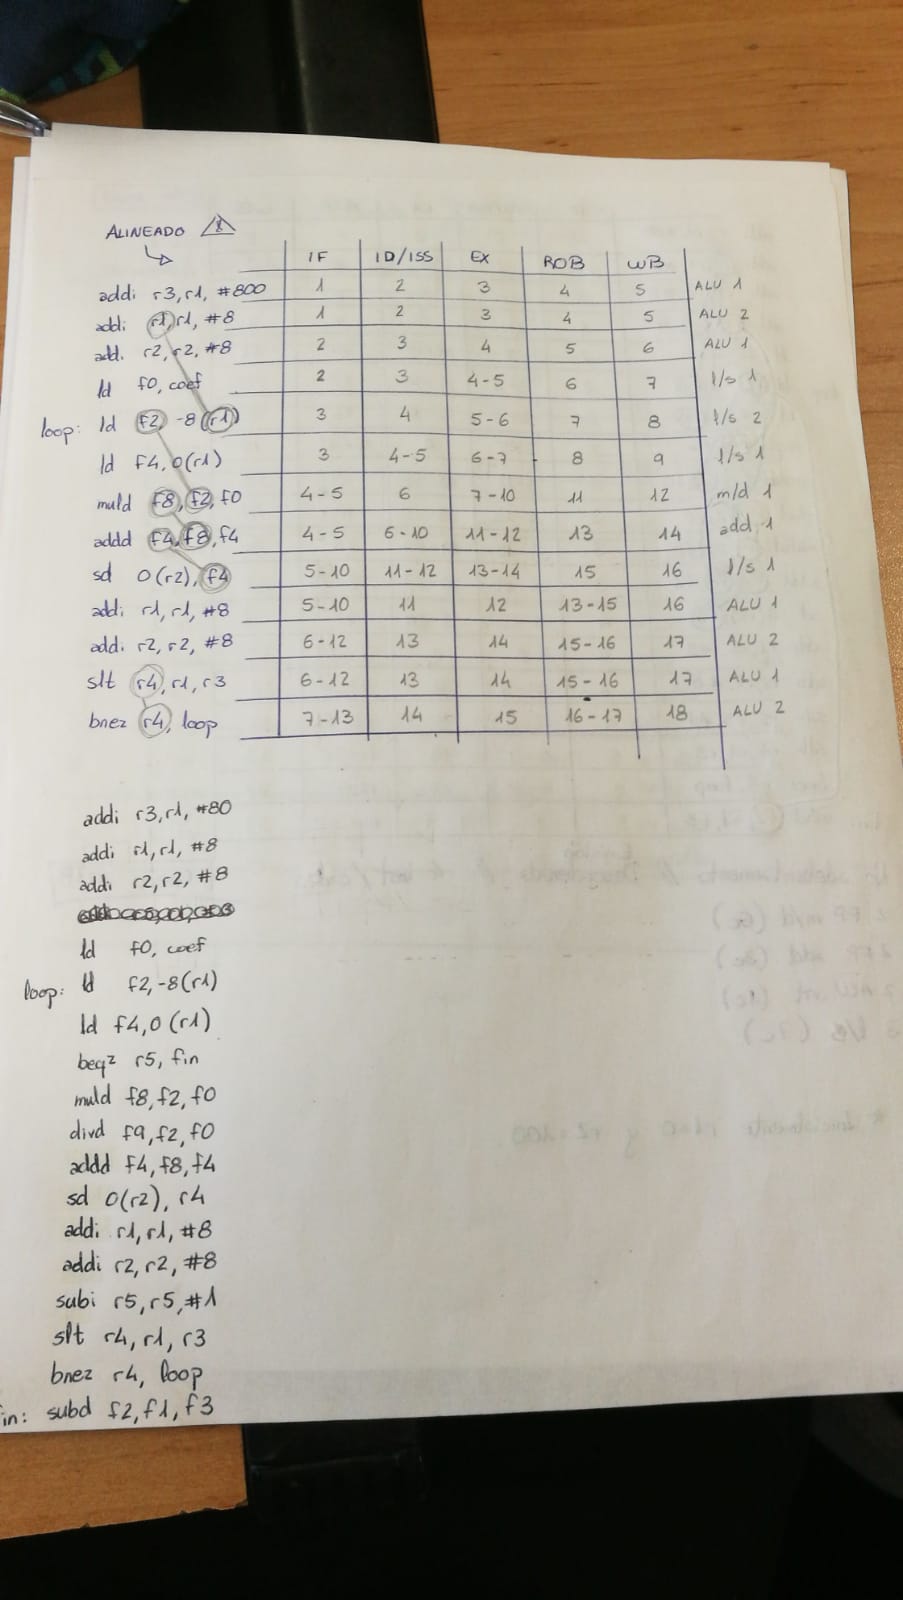 ALINEADO
IF ID/ISS EX ROB WB
addi r3,r1, #800 1 2 3 4 5 ALU 1
addi r1,r1, #8 1 2 3 4 5 ALU 2
add. r2,r2, #8 2 3 4 5 6 ALU 1
ld f0, coef 2 3 4-5 6 7 l/s 1
loop: ld f2, -8(r1) 3 4 5-6 7 8 l/s 2
ld f4, 0(r1) 3 4-5 6-7 8 9 l/s 1
muld f8, f2, f0 4-5 6 7-10 11 12 m/d 1
addd f4, f8, f4 4-5 6-10 11-12 13 14 add 1
sd 0(r2), f4 5-10 11-12 13-14 15 16 l/s 1
addi r1, r1, #8 5-10 11 12 13-15 16 ALU 1
addi r2, r2, #8 6-12 13 14 15-16 17 ALU 2
slt r4, r1, r3 6-12 13 14 15-16 17 ALU 1
bnez r4, loop 7-13 14 15 16-17 18 ALU 2
addi r3, r1, #80
addi r1, r1, #8
addi r2, r2, #8
ld f0, coef
loop: ld f2, -8(r1)
ld f4, 0(r1)
beqz r5, fin
muld f8, f2, f0
divd f9, f2, f0
addd f4, f8, f4
sd 0(r2), r4
addi r1, r1, #8
addi r2, r2, #8
subi r5, r5, #1
slt r4, r1, r3
bnez r4, loop
in: subd f2, f1, f3